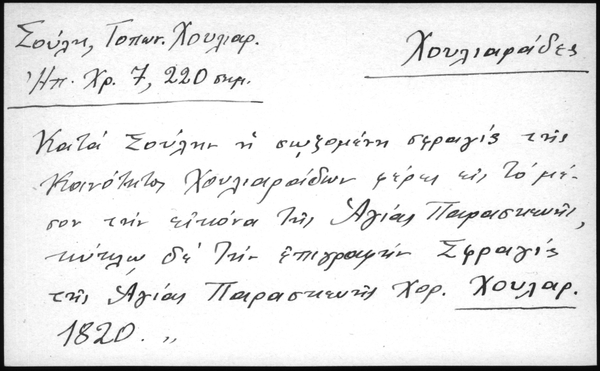 Σούλη, Τοπων. Χουλιαρ.
Ἠπ. Χρ. 7, 220 σημ.
Χουλιαράδες
Κατά Σούλην ἡ σῳζομένη σφραγίς τῆς
Κοινότητος Χουλιαράδων φέρει εἰς τό μέ-
σον τήν εἰκόνα τῆς Ἁγίας Παρασκευῆς,
κύκλω δέ τήν ἐπιγραφήν Σφραγίς
τῆς Ἁγίας Παρασκευῆς Χορ. Χουλαρ.
1820. „